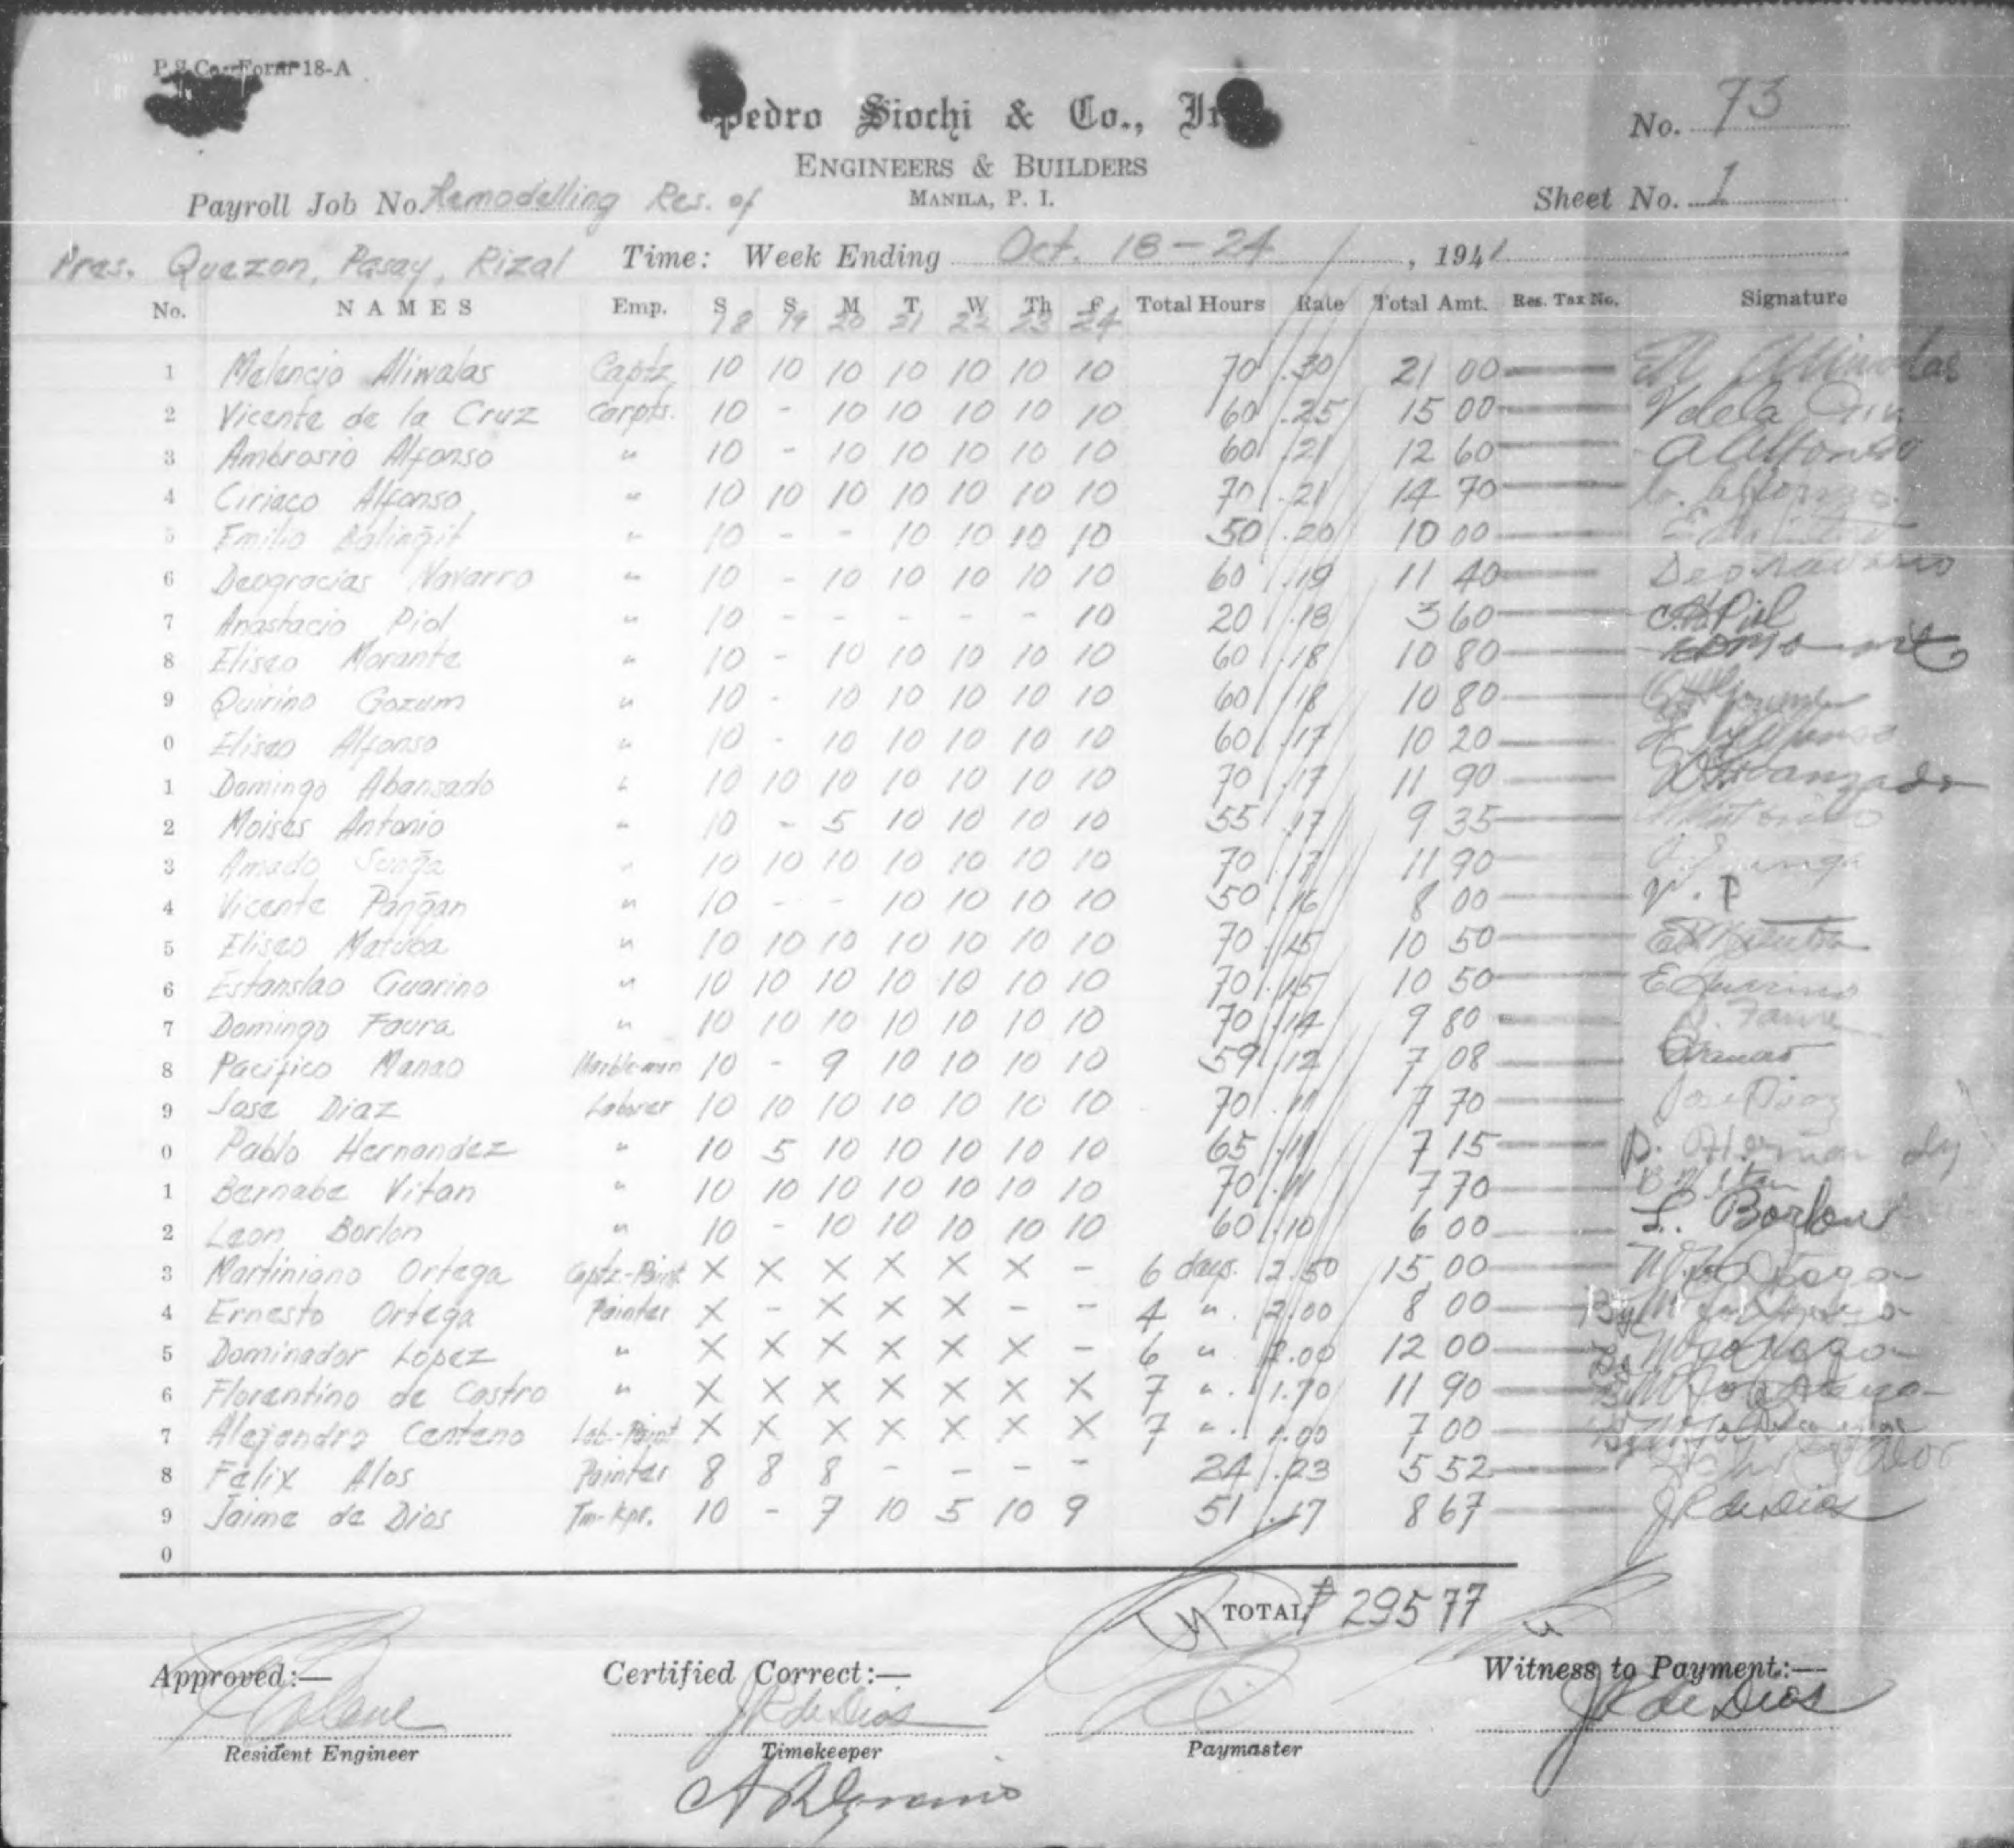 P.S.Co.-Form 18-A
Pedro Siochi & Co.,
ENGINEERS & BUILDERS
MANILA, P. I.
No. 73
Sheet No. 1
Payroll Job No. Remodelling Res. of
Pres. Quezon, Pasay, Rizal Time: Week Ending Oct. 18-24, 1941
No. NAMES Emp. S S M T W Th F Total Hours Rate Total Amt. Res. Tax No. Signature
18 19 20 21 22 23 24
1 Melencio Aliwalas Captz 10 10 10 10 10 10 10 70 .30 21 00
2 Vicente de la Cruz Carpts. 10 - 10 10 10 10 10 60 .25 15 00
3 Ambrosio Alfonso " 10 - 10 10 10 10 10 60 .21 12 60
4 Ciriaco Alfonso " 10 10 10 10 10 10 10 70 .21 14 70
5 Emilio Balingit " 10 - - 10 10 10 10 50 .20 10 00
6 Deogracias Navarro " 10 - 10 10 10 10 10 60 .19 11 40
7 Anastacio Piol " 10 - - - - - 10 20 .18 3 60
8 Eliseo Morante " 10 - 10 10 10 10 10 60 .18 10 80
9 Quirino Gozum " 10 - 10 10 10 10 10 60 .18 10 80
0 Eliseo Alfonso " 10 - 10 10 10 10 10 60 .17 10 20
1 Domingo Abansado " 10 10 10 10 10 10 10 70 .17 11 90
2 Moises Antonio " 10 - 5 10 10 10 10 55 .17 9 35
3 Amado Sunga " 10 10 10 10 10 10 10 70 .17 11 90
4 Vicente Pangan " 10 - - 10 10 10 10 50 .16 8 00 V. P
5 Eliseo Matuba " 10 10 10 10 10 10 10 70 .15 10 50
6 Estanslao Guarino " 10 10 10 10 10 10 10 70 .15 10 50
7 Domingo Faura " 10 10 10 10 10 10 10 70 .14 9 80
8 Pacifico Manao Marble-man 10 - 9 10 10 10 10 59 .12 7 08
9 Jose Diaz Laborer 10 10 10 10 10 10 10 70 .11 7 70 Jose Diaz
0 Pablo Hernandez " 10 5 10 10 10 10 10 65 .11 7 15
1 Bernabe Vitan " 10 10 10 10 10 10 10 70 .11 7 70 B Vitan
2 Leon Borlon " 10 - 10 10 10 10 10 60 .10 6 00 L. Borlon
3 Martiniano Ortega Captz-Paint X X X X X X - 6 days. 2.50 15 00
4 Ernesto Ortega Painter X - X X X - - 4 " 2.00 8 00
5 Dominador Lopez " X X X X X X - 6 " 2.00 12 00
6 Florentino de Castro " X X X X X X X 7 " 1.70 11 90
7 Alejandro Centeno Lab.-Paint X X X X X X X 7 " 1.00 7 00
8 Felix Alos Painter 8 8 8 - - - - 24 .23 5 52
9 Jaime de Dios Tm-kpr. 10 - 7 10 5 10 9 51 .17 8 67 J R de Dios
0
TOTAL ₱ 295 77
Approved:— Certified Correct:— Witness to Payment:—
J R de Dios J R de Dios
Resident Engineer Timekeeper Paymaster